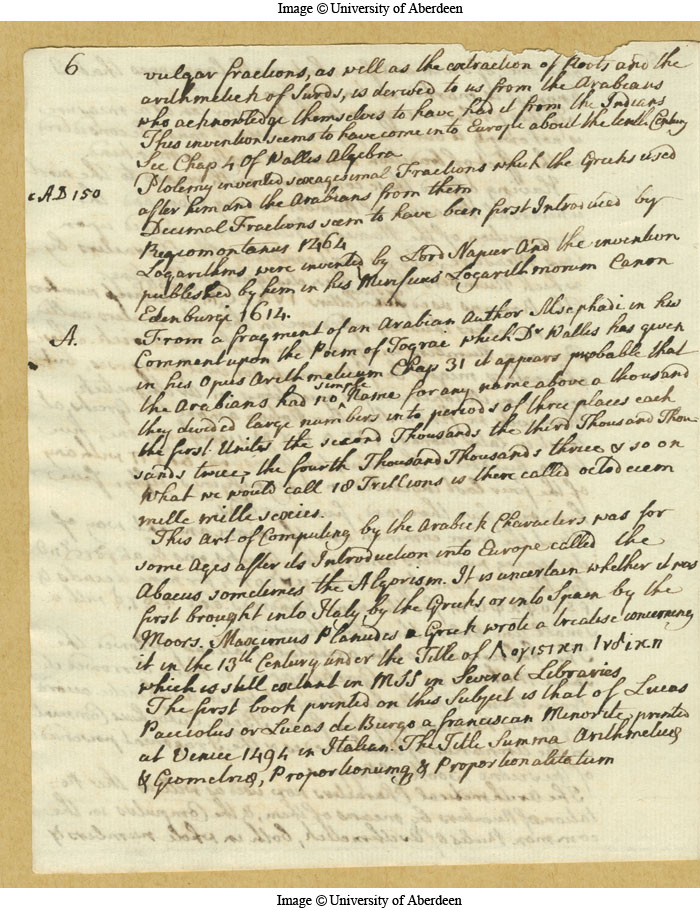 Image © University of Aberdeen
6
vulgar fractions, as well as the extraction of Roots and the
arithmetick of Surds, is derived to us from the Arabians
who acknowledge themselves to have had it from the Indians
This invention seems to have come into Europe about the tenth Century
See Chap 4 Of Wallis Algebra
Ptolemy invented sexagesimal Fractions which the Greeks used
cAD 150
after him and the Arabians from them
Decimal Fractions seem to have been first Introduced by
Regiomontanus 1464
Logarithms were invented by Lord Napier And the invention
published by him in his Mirificus Logarithmorum Canon
Edenburge 1614.
A.
From a fragment of an Arabian Author Alsephadi in his
Comment upon the Poem of Tograi which Dr Wallis has given
in his Opus Arithmeticum Chap 31 it appears probable that
the Arabians had no simple Name for any name above a thousand
they divided large numbers into periods of three places each
the first Unites the second Thousands the third Thousand Thou-
sands twice, the fourth Thousand Thousands thrice & so on
What we would call 18 Trillions is there called octodecem
mille mille sexies.
This Art of Computing by the Arabick Characters was for
some Ages after its Introduction into Europe called the
Abacus sometimes the Algorism. It is uncertain whether it was
first brought into Italy by the Greeks or into Spain by the
Moors. Maximus Planudes a Greek wrote a treatise concerning
it in the 13th Century under the Title of
which is still extant in MSS in Several Libraries
The first book printed on this Subject is that of Lucas
Paciolus or Lucas de Burgo a franciscan Minorite, printed
at Venice 1494 in Italian. The Title Summa Arithmeticæ
& Geometriæ, Proportionumq & Proportionalitatum
Image © University of Aberdeen